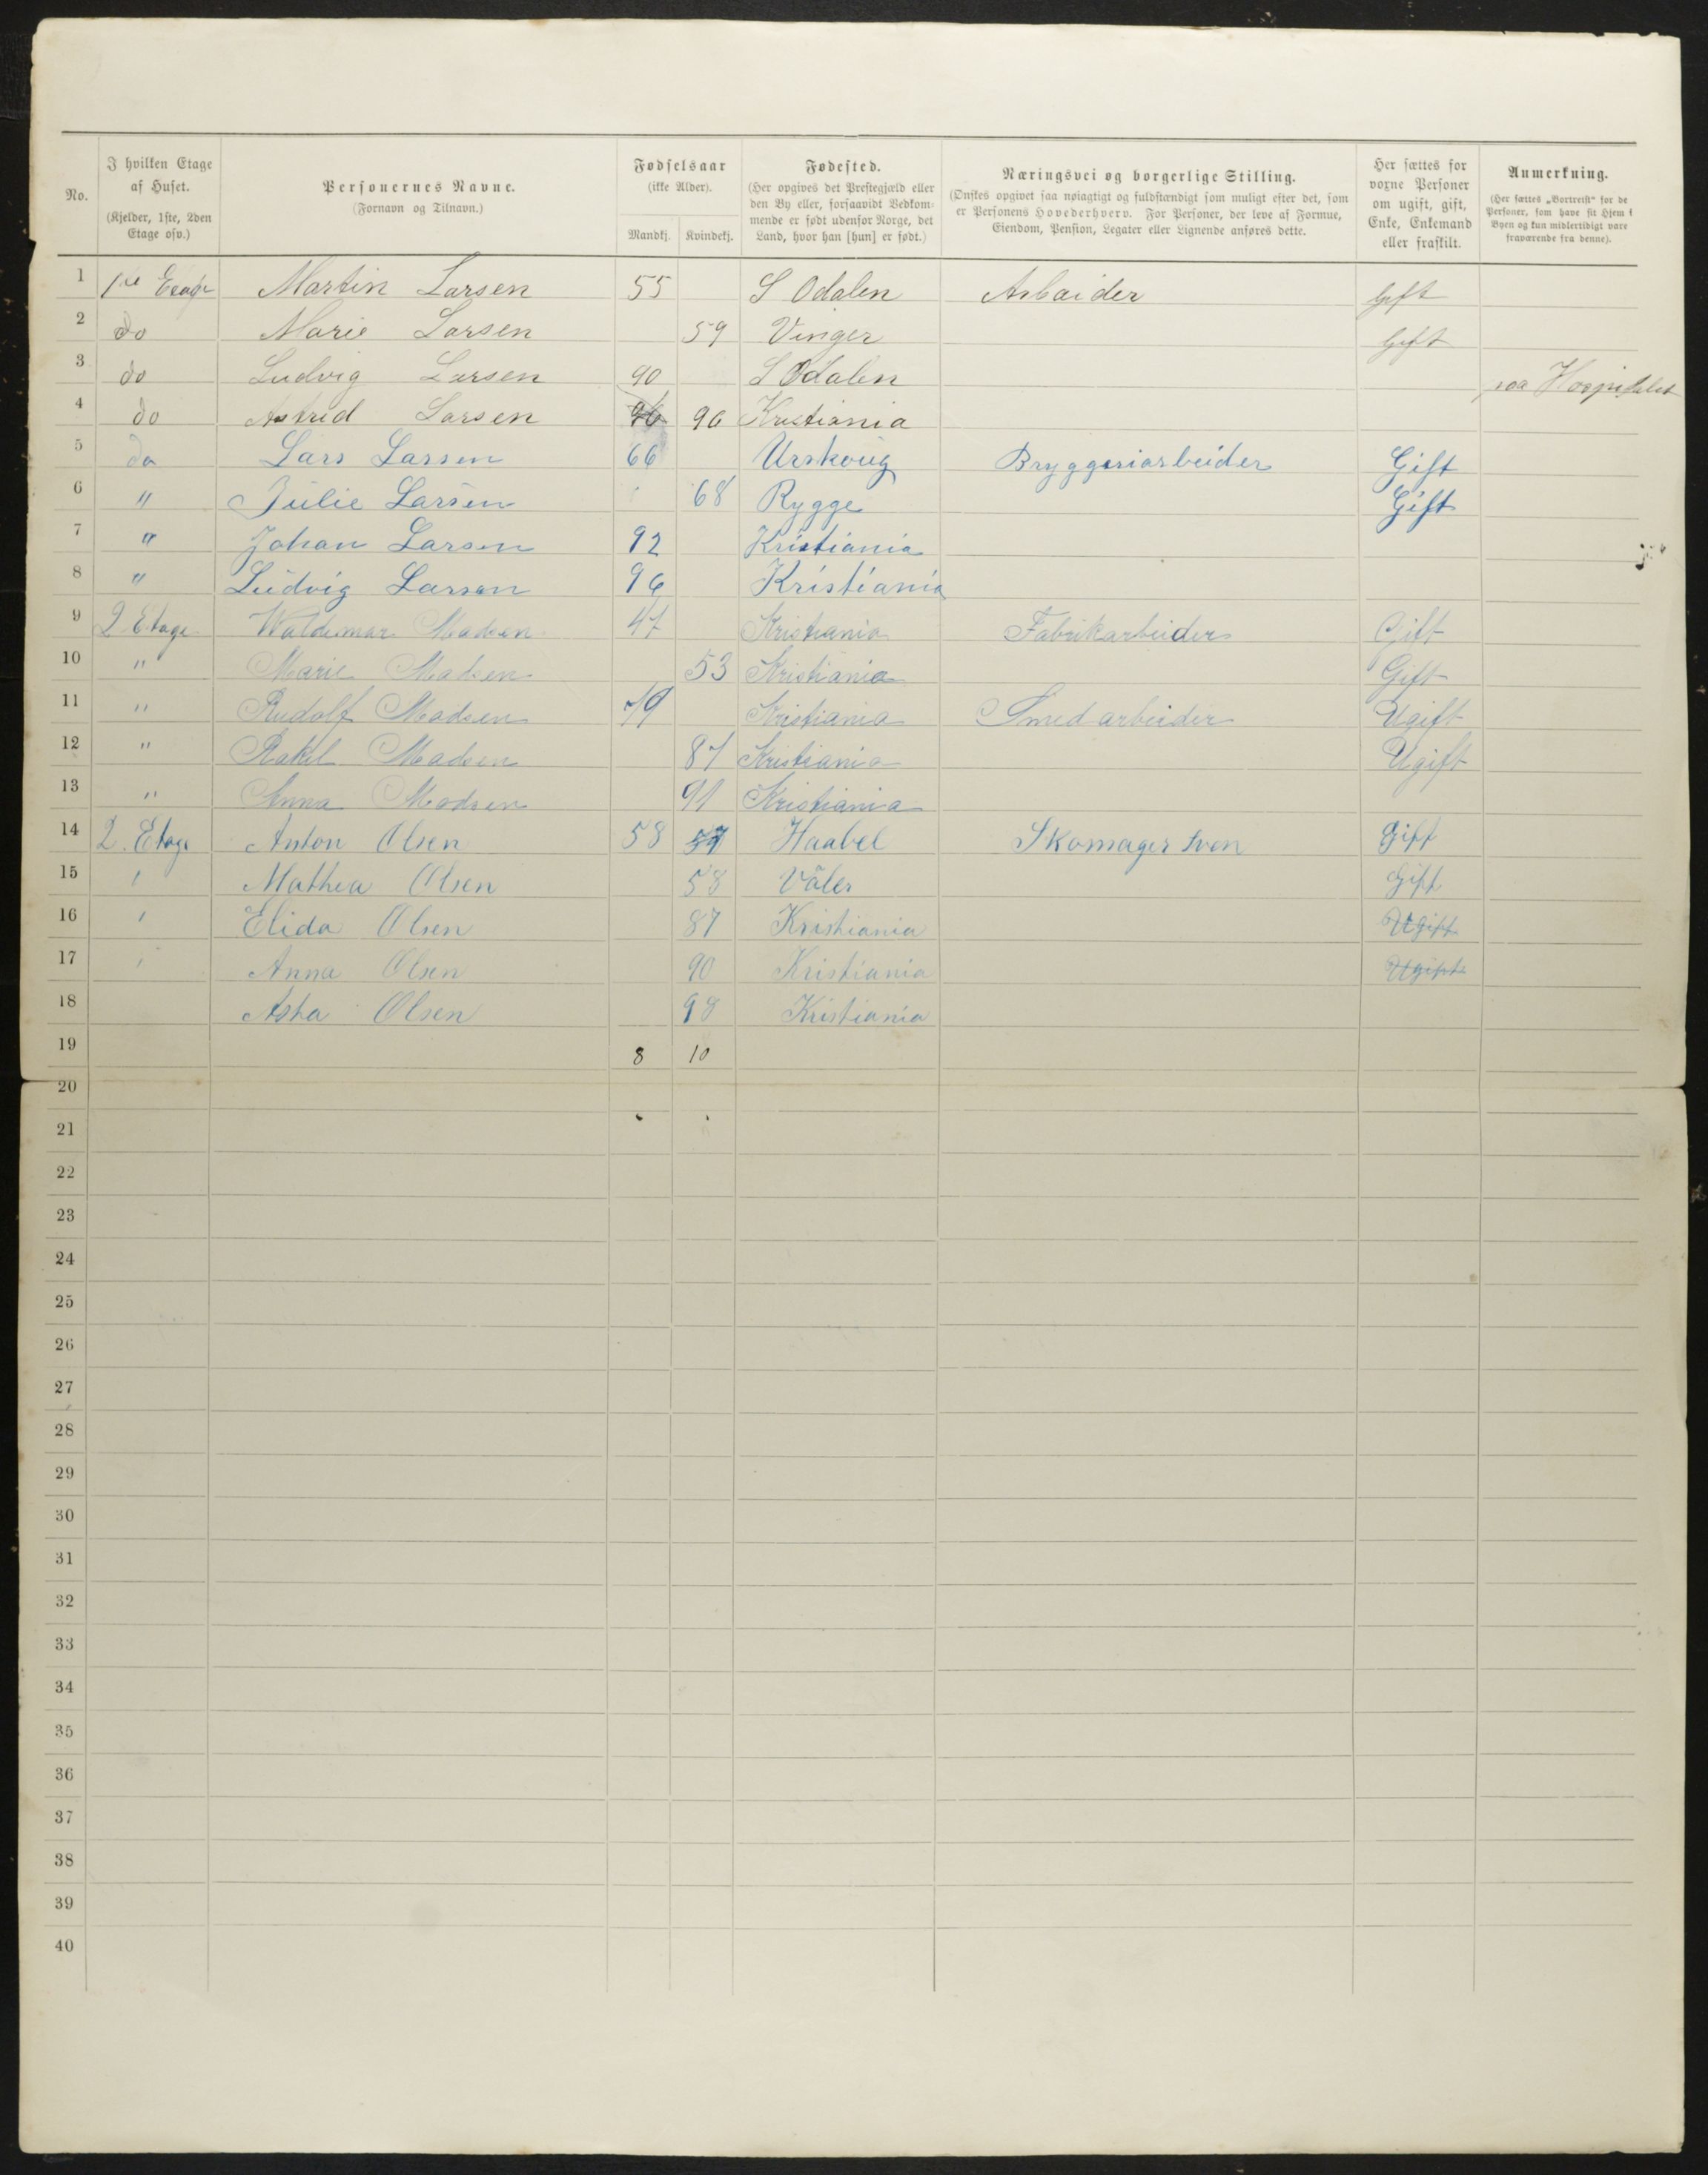 No.
I hvilken Etage af Huset. (Kjelder, 1ste, 2den Etage osv.)
Personernes Navne. (Fornavn og Tilnavn.)
Fødselsaar (ikke Alder). Mandkj. Kvindekj.
Fødested. (Her opgives det Prestegjæld eller den By eller, forsaavidt Vedkommende er født udenfor Norge, det Land, hvor han [hun] er født.)
Næringsvei og borgerlige Stilling. (Ønskes opgivet saa nøiagtigt og fuldstændigt som muligt efter det, som er Personens Hovederhverv. For Personer, der leve af Formue, Eiendom, Pension, Legater eller Lignende anføres dette.
Her sættes for voxne Personer om ugift, gift, Enke, Enkemand eller fraskilt.
Anmerkning. (Her sættes „Bortreist“ for de Personer, som have sit Hjem i Byen og kun midlertidigt være fraværende fra denne).
1 1ste Etage Martin Larsen 55 S Odalen Arbaider Gift
2 do Marie Larsen 59 Vinger Gift
3 do Ludvig Larsen 90 S Odalen paa Hospitalet
4 do Astrid Larsen 96 Kristiania
5 do Lars Larsen 66 Urskoug Bryggeriarbeider Gift
6 " Julie Larsen 68 Rygge Gift
7 " Johan Larsen 92 Kristiania
8 " Ludvig Larsen 96 Kristiania
9 2 Etage Waldemar Madsen 47 Kristiania Fabrikarbeider Gift
10 " Marie Madsen 53 Kristiania Gift
11 " Rudolf Madsen 79 Kristiania Smedarbeider Ugift
12 " Rakel Madsen 87 Kristiania Ugift
13 " Anna Madsen 91 Kristiania
14 2. Etage Anton Olsen 58 57 Haabel Skomager Sven Gift
15 " Mathea Olsen 58 Våler Gift
16 " Elida Olsen 87 Kristiania Ugift
17 " Anna Olsen 90 Kristiania Ugift
18 Asta Olsen 98 Kristiania
19 8 10
20
21
22
23
24
25
26
27
28
29
30
31
32
33
34
35
36
37
38
39
40